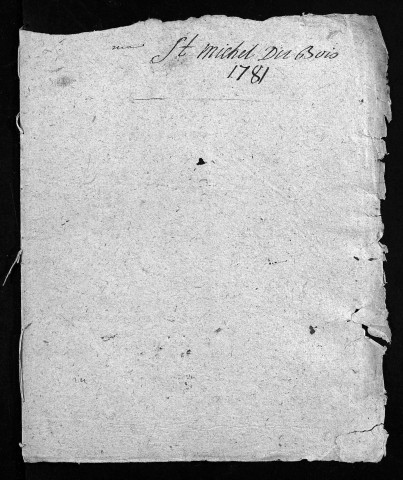 St Michel Du Bois
1781